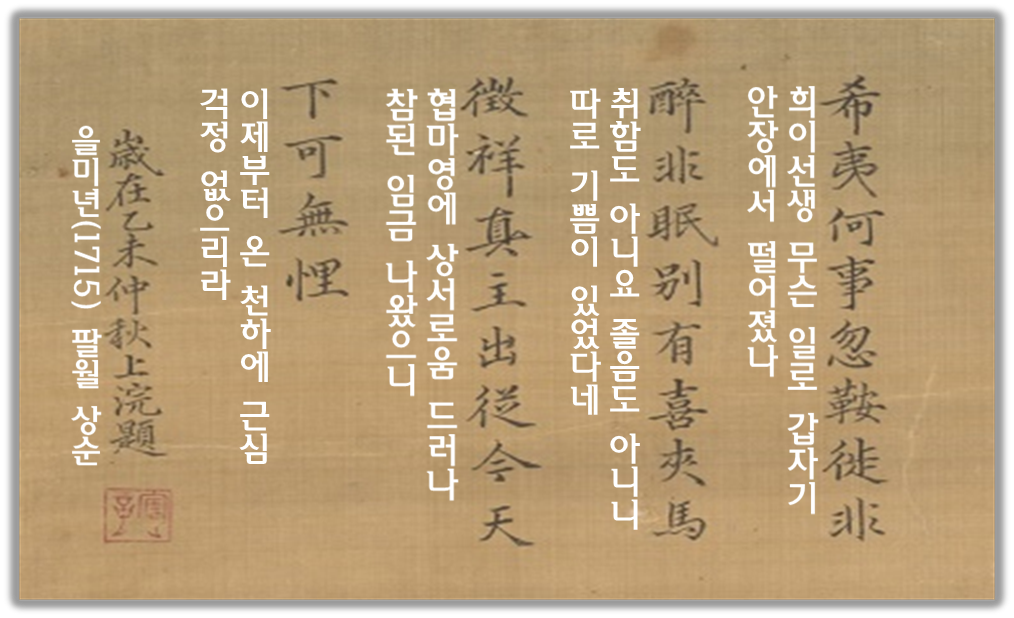 希夷何事忽鞍徙非
희이선생 무슨 일로 갑자기
안장에서 떨어졌나
醉非眠别有喜夾馬
취함도 아니요 졸음도 아니니
따로 기쁨이 있었다네
徵祥真主出從今天
협마영에 상서로움 드러나
참된 임금 나왔으니
下可無悝
이제부터 온 천하에 근심
걱정 없으리라
歲在乙未仲秋上浣題
을미년(1715) 팔월 상순